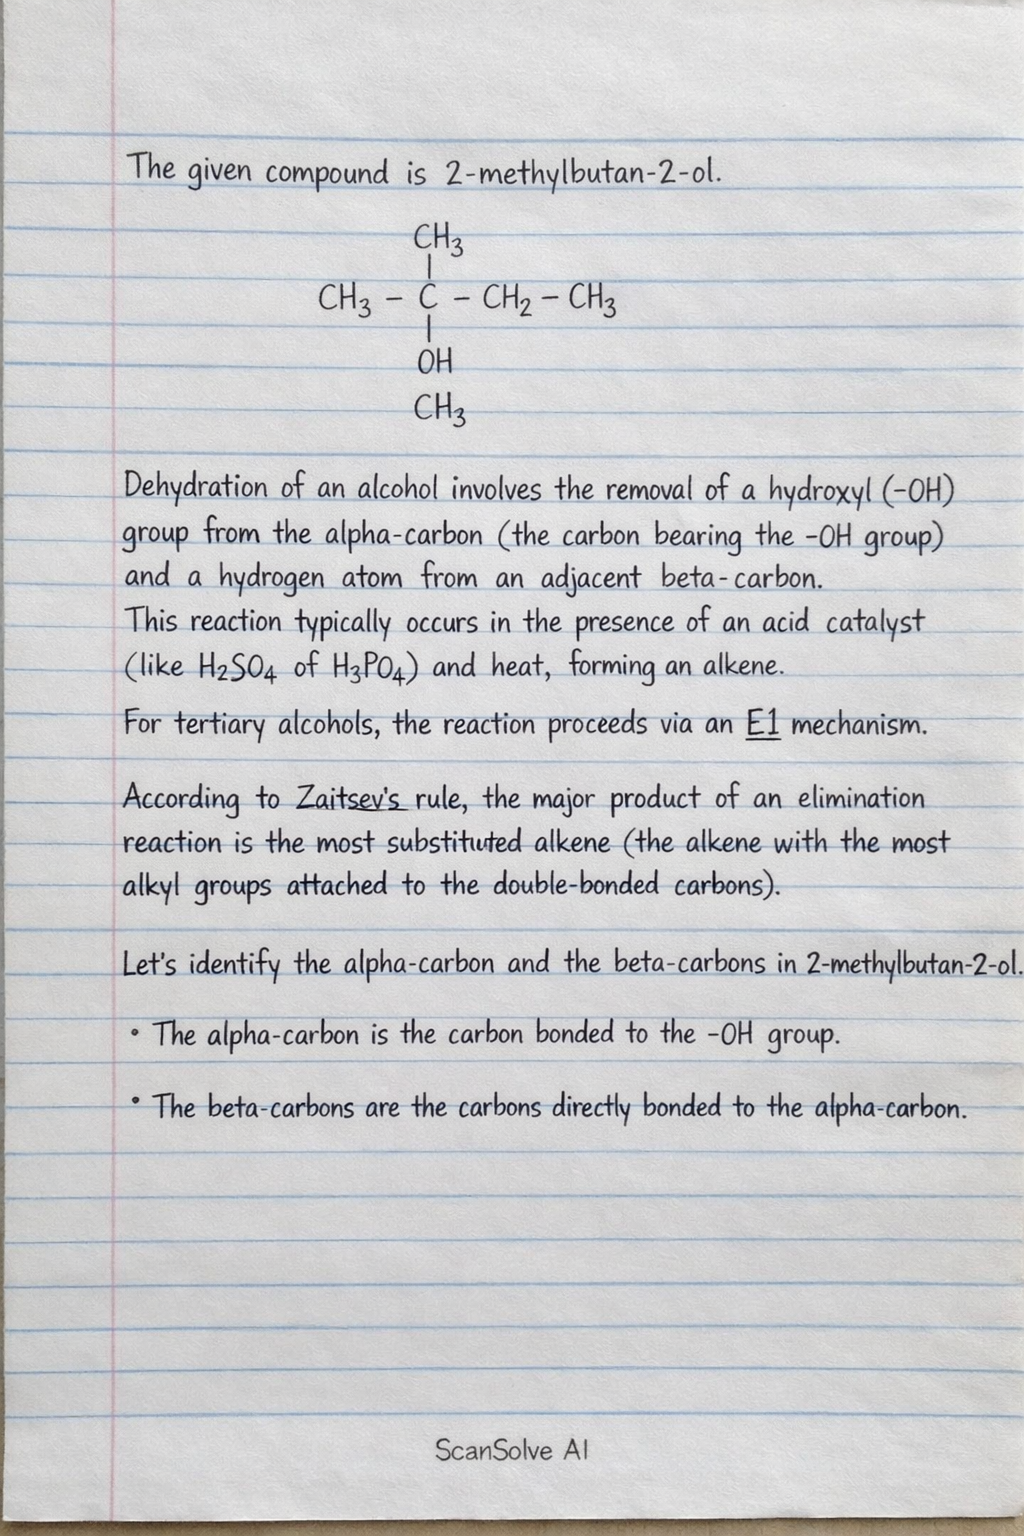 The given compound is 2-methylbutan-2-ol.
CH₃
|
CH₃ – C – CH₂ – CH₃
|
OH
CH₃
Dehydration of an alcohol involves the removal of a hydroxyl (-OH)
group from the alpha-carbon (the carbon bearing the -OH group)
and a hydrogen atom from an adjacent beta-carbon.
This reaction typically occurs in the presence of an acid catalyst
(like H₂SO₄ of H₃PO₄) and heat, forming an alkene.
For tertiary alcohols, the reaction proceeds via an E1 mechanism.
According to Zaitsev's rule, the major product of an elimination
reaction is the most substituted alkene (the alkene with the most
alkyl groups attached to the double-bonded carbons).
Let's identify the alpha-carbon and the beta-carbons in 2-methylbutan-2-ol.
• The alpha-carbon is the carbon bonded to the -OH group.
• The beta-carbons are the carbons directly bonded to the alpha-carbon.
ScanSolve AI